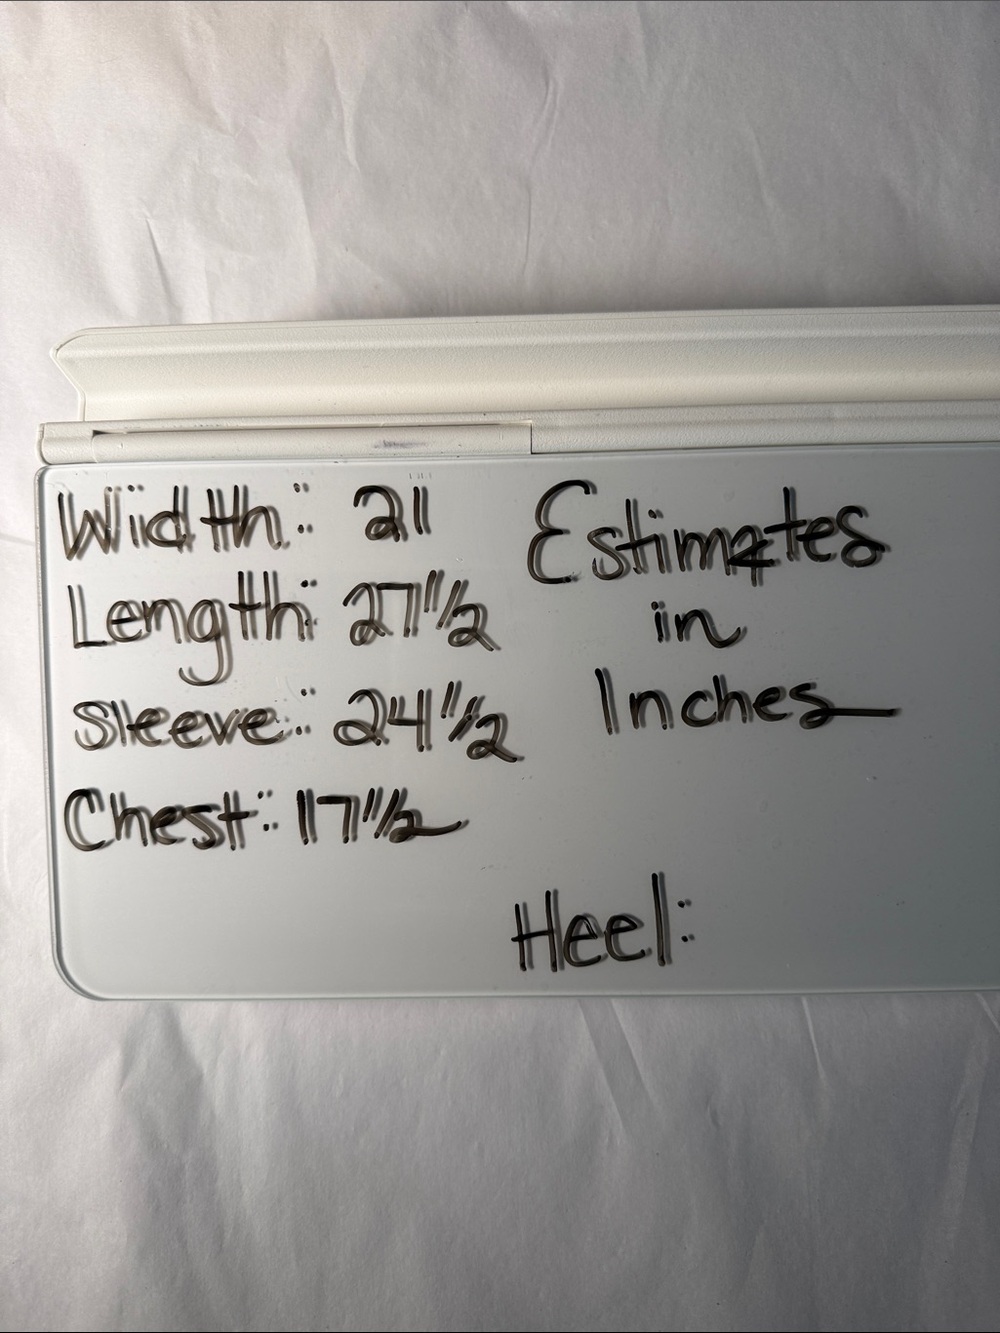 Width: 21
Length: 27 1/2
Sleeve: 24 1/2
Chest: 17 1/2
Estimates
in
Inches
Heel: